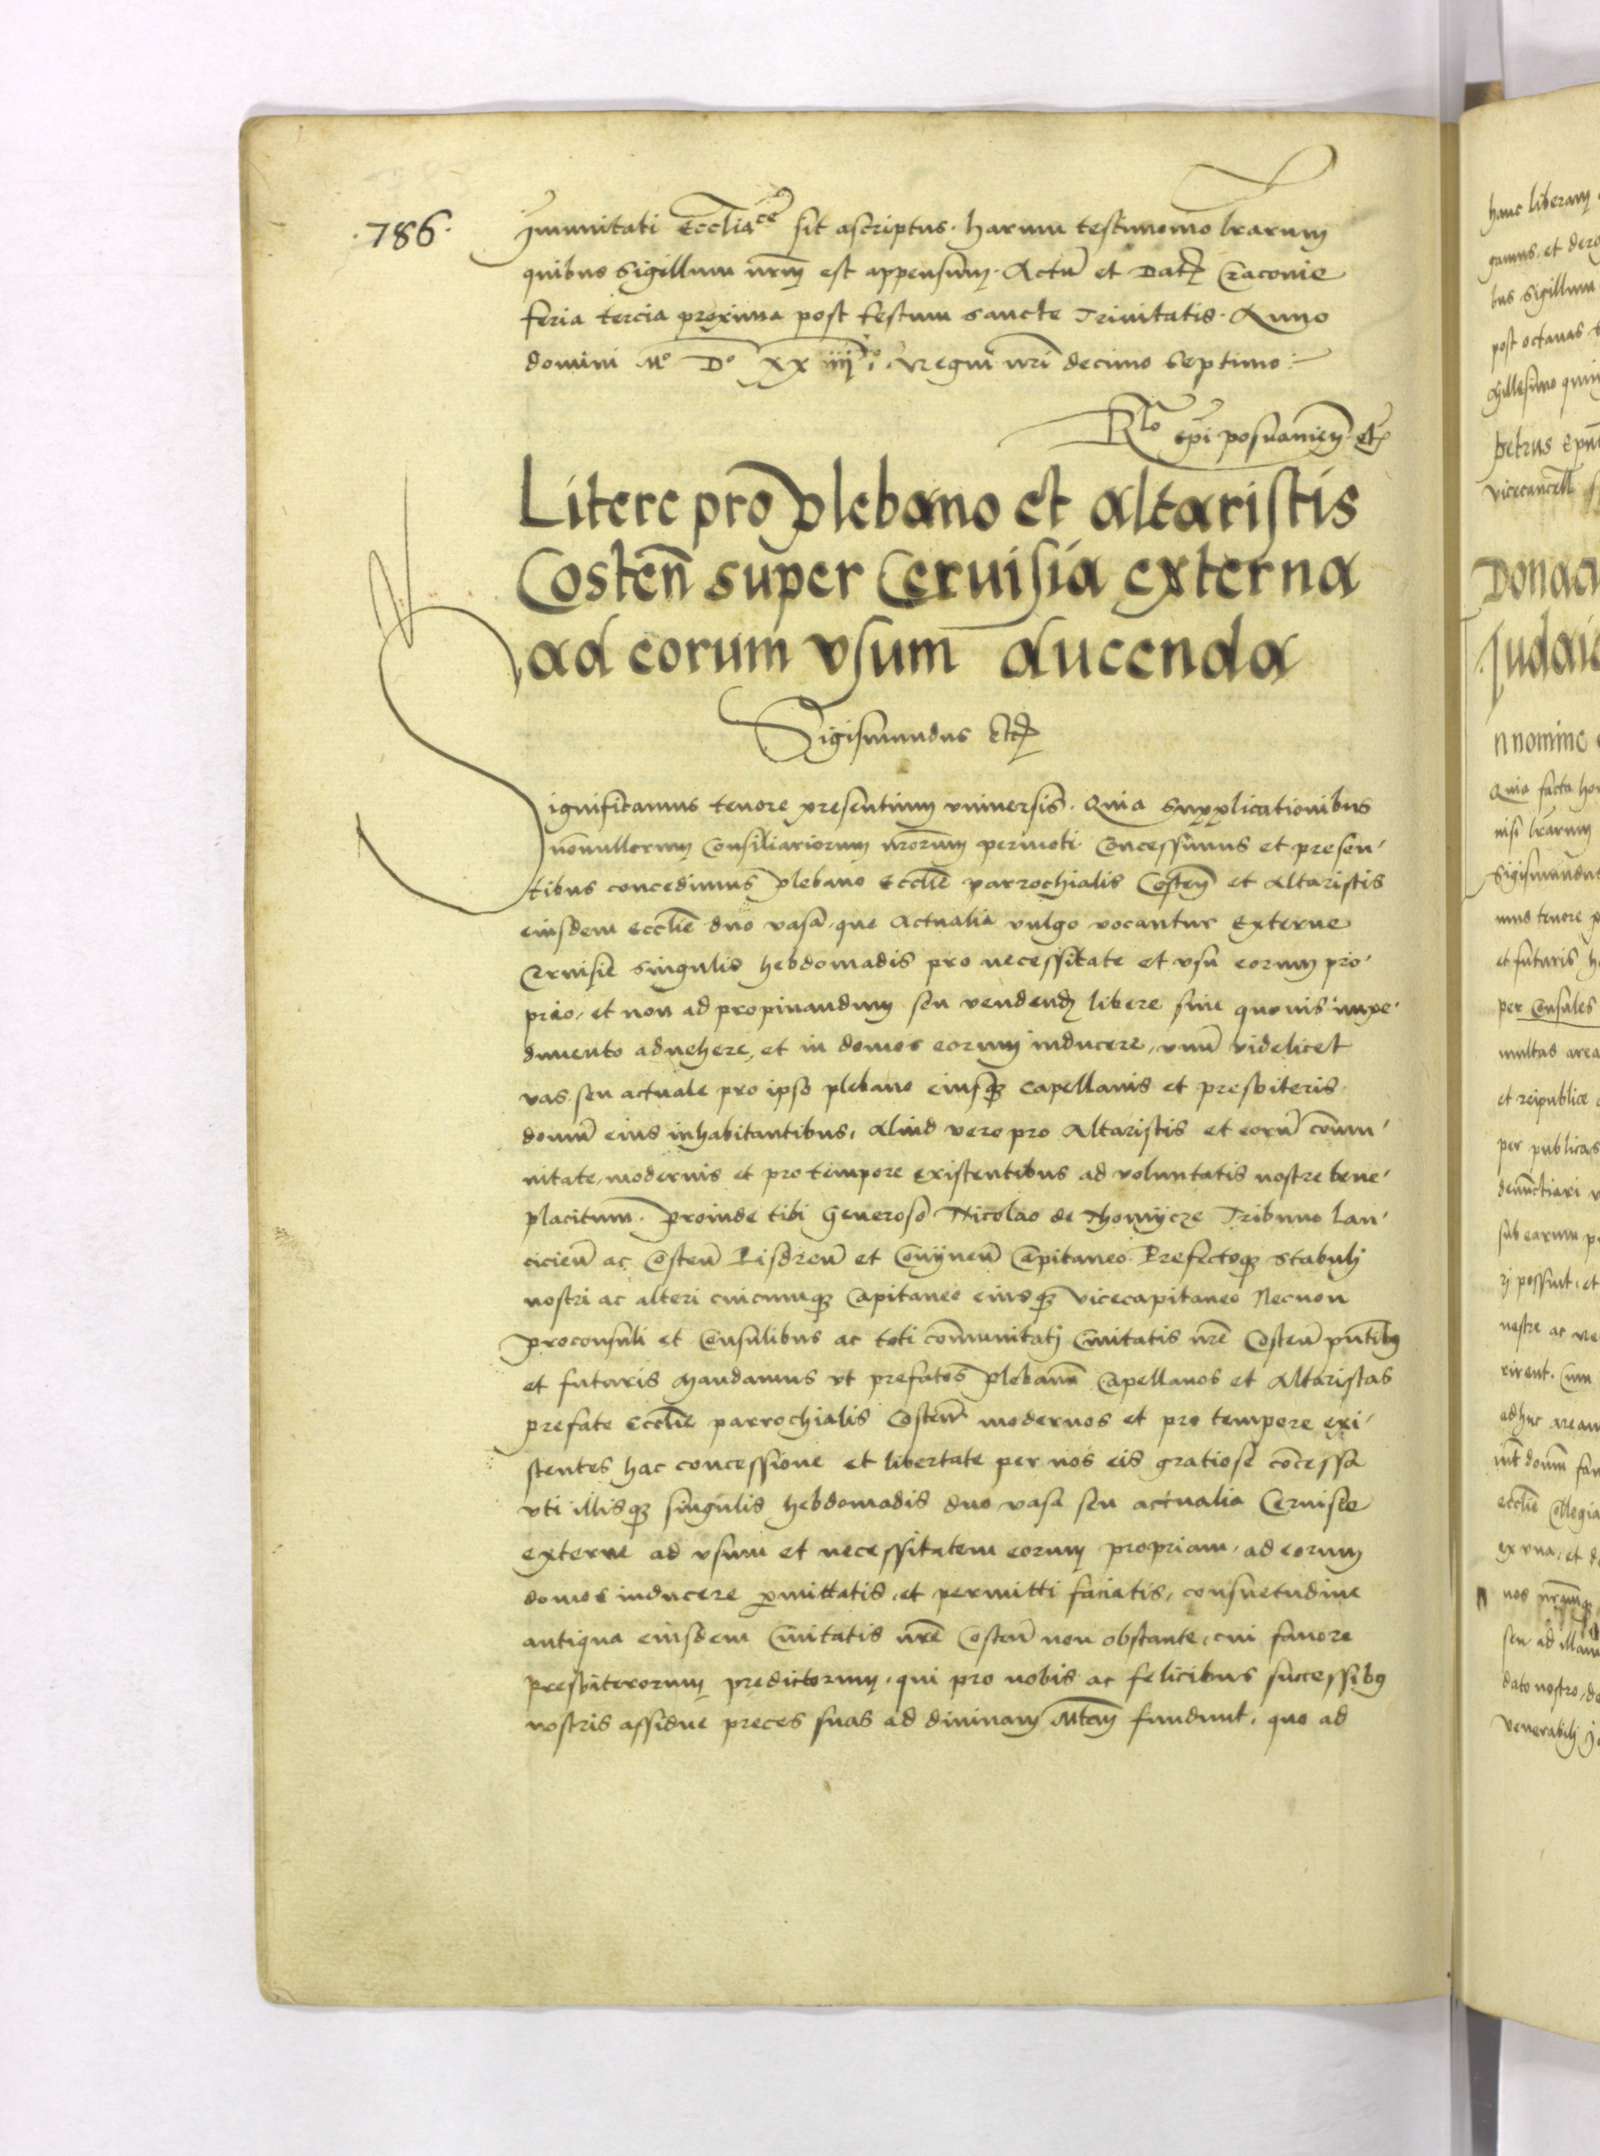 ·786·
Immunitati Eccliăce sit ascriptus. Harum testimonio lrarum
quibus Sigillum nrm̄ est appensum. Actū et Dat Cracovie
feria tercia proxima post festum Sancte Trinitatis. Anno
domini Mº Dº XX iiijº. Regni nri decimo Septimo
Rlo Epi posnanien̄ etc
Litere pro plebano et altaristis
Costen̄ super Ceruisia externa
ad eorum vsum ducenda
Sigismundus etc
Significamus tenore presentium vniuersis. Quia Supplicationibus
nonnullorum Consiliariorum nrorum permoti Concessimus et presen-
tibus concedimus plebano Ecclīe parrochialis Costen̄ et Altaristis
eiusdem ecclīe duo vasa que Actualia vulgo vocantur Externe
Ceruisie singulis hebdomadis pro necessitate et vsu eorum pro-
prio, et non ad propinandum seu vendend libere sine quouis impe-
dimento aduehere, et in domos eorum inducere, vnū videlicet
vas seu actuale pro ipso plebano eiusq Capellanis et presbiteris
domū eius inhabitantibus, Aliud vero pro Altaristis et eorū com̄u-
nitate, modernis et pro tempore existentibus ad voluntatis nostre bene-
placitum. Proinde tibi Generoso Nicolao de Thomycze Tribuno Lan-
cicien̄ ac Costen̄ Pisdren̄ et Conynen̄ Capitaneo Prefectoq stabuli
nostri ac alteri cuicumq Capitaneo eiusq vicecapitaneo Necnon
proconsuli et Consulibus ac toti com̄unitati Ciuitatis nrē Costen̄ pn̄tibus
et futuris Mandamus vt prefatos plebanū Capellanos et Altaristas
prefate Ecclīe parrochialis Costen̄ modernos et pro tempore exi-
stentes hac concessione et libertate per nos eis gratiose cōcessa
vti illisq singulis hebdomadis duo vasa seu actualia Ceruisie
externe ad vsum et necessitatem eorum propriam, ad eorum
domos inducere p̱mittatis, et permitti faciatis, consuetudine
antiqua eiusdem Ciuitatis nrē Costen̄ non obstante, cui fauore
Presbiterorum predictorum, qui pro nobis ac felicibus successibus
nostris assidue preces suas ad diuinam Mtem fundunt, quo ad
hanc liberam
gamus. et dero
bus Sigillum
post octauas
Millesimo quin
Petrus Epūs
vicecancell
Donaci
Judaic
n nomine
Quia facta ho
nisi lrarum
Sigismundus
mus tenore p
et futuris h
per Consules
multas area
et reipublice
per publicas
denūctiari v
sub earum p
ri possint, et
nestre ac ve
rirent. Cum
adhuc aream
int domū fa
ecclīe Collegia
ex vna, et d
nos nrāmq
seu ad illam
dato nostro, de
Venerabili